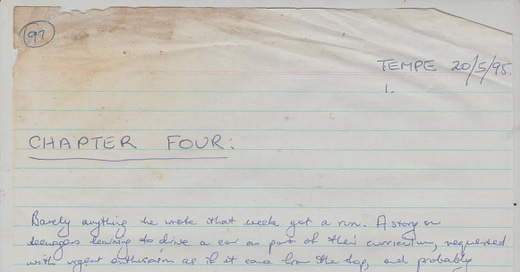 97
TEMPE 20/5/95.
1.
CHAPTER FOUR:
Barely anything he wrote that week got a run. A story on
teenagers learning to drive a car as part of their curriculum, requested
with urgent enthusiasm as if it came from the top, and probably